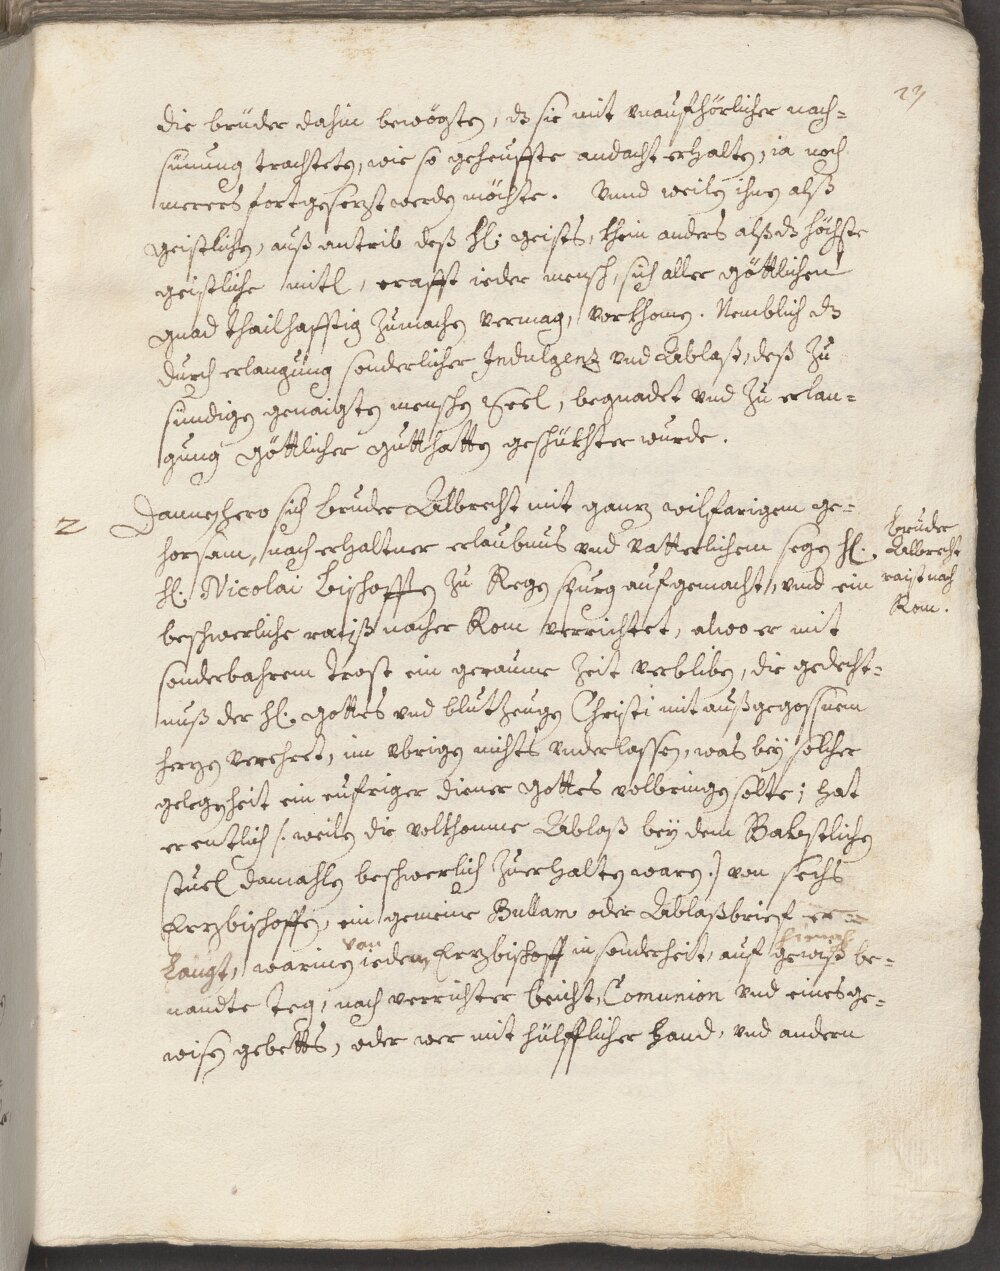 23
die brüder dahin bewögten, dz sie mit unaufhörlicher nach=
sinnung trachteten, wie so geheuffte andacht erhalten, ia noch
merers fortgesezt werden möchte. Vnnd weilen ihnen alß
geistlichen, auß antrib deß hl: geists, khein anders alß dz höchste
geistliche mitl, crafft ieder mensch, sich aller göttlichen
gnad thailhafftig zumachen vermag, vorkhomen. Nemblich dz
durch erlangung sonderlicher Indulgenz vnd Ablaß, deß zu
sündigen genaigten menschen Seel, begnadet vnd zu erlan=
gung göttlicher gutthatten geschükhter wurde.
2 Dannenhero sich bruder Albrecht mit ganz wilfarigem ge=
horsam, nach erhaltner erlaubnus vnd vatterlichem segen hl.
hl. Nicolai Bischoffen zu Regenspurg aufgemacht, vnnd ein
beschwerliche raiß nacher Rom verrichtet, alwo er mit
sonderbahrem trost ein geraume zeit verbliben, die gedecht=
nuß der hl. Gottes vnd blutzeugen Christi mit außgegossnem
herzen verehret, im vbrigen nichts vnderlassen, was bey solcher
gelegenheit ein eufriger diener Gottes volbringen solte; hat
er entlich /: weilen die volkhomne Ablaß bey dem Babstlichen
stuel damahlen beschwerlich zuerhalten waren :/ von sechs
Erzbischoffen, ein gemeine Bullam oder Ablaßbrief er=
langt, warinen von iedem Erzbischoff in sonderheit, auf gewiß be=
nandte teg, nach verrichter beicht, Comunion vnd eines ge=
wisen gebetts, oder wer mit hülfflicher hand, vnd andern
bruder
Albrecht
raist nach
Rom.